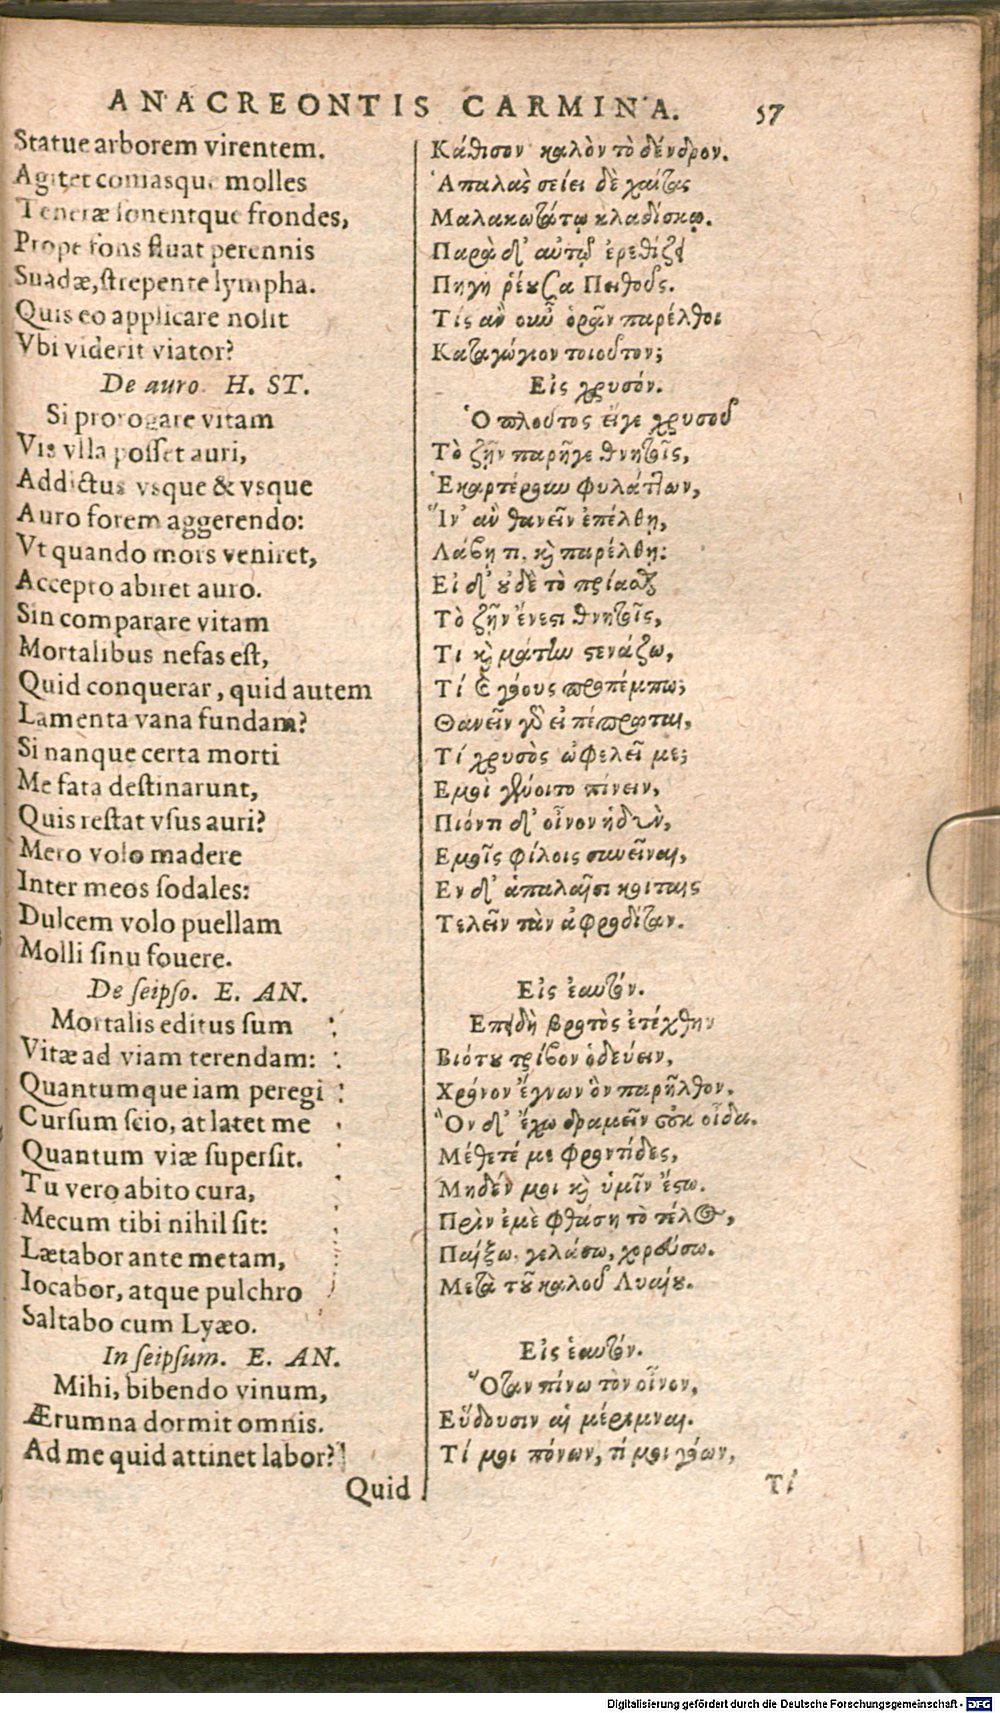 ANACREONTIS CARMINA. 57
Statue arborem virentem.
Agitet comasque molles
Teneræ ſonentque frondes,
Prope fons fluat perennis
Suadæ, ſtrepente lympha.
Quis eo applicare nolit
Vbi viderit viator?
De auro. H. ST.
Si prorogare vitam
Vis vlla poſſet auri,
Addictus vsque & vsque
Auro forem aggerendo:
Vt quando mors veniret,
Accepto abiret auro.
Sin comparare vitam
Mortalibus nefas eſt,
Quid conquerar, quid autem
Lamenta vana fundam?
Si nanque certa morti
Me fata deſtinarunt,
Quis reſtat vſus auri?
Mero volo madere
Inter meos ſodales:
Dulcem volo puellam
Molli ſinu fouere.
De ſeipſo. E. AN.
Mortalis editus ſum
Vitæ ad viam terendam:
Quantumque iam peregi
Curſum ſcio, at latet me
Quantum viæ ſuperſit.
Tu vero abito cura,
Mecum tibi nihil ſit:
Lætabor ante metam,
Iocabor, atque pulchro
Saltabo cum Lyæo.
In ſeipſum. E. AN.
Mihi, bibendo vinum,
Ærumna dormit omnis.
Ad me quid attinet labor?
Quid
Κάθισον καλὸν τὸ δένδρον.
Ἁπαλὰς σείει δὲ χαίτας
Μαλακωτάτῳ κλαδίσκῳ.
Παρὰ δ' αὐτῷ ἐρεθίζει
Πηγὴ ῥέουσα Πειθοῦς.
Τίς ἂν οὖν ὁρῶν παρέλθοι
Καταγώγιον τοιοῦτον;
Εἰς χρυσόν.
Ὁ πλοῦτος εἴγε χρυσοῦ
Τὸ ζῆν παρῆγε θνητοῖς,
Ἐκαρτέρουν φυλάττων,
Ἵν' ἂν θανεῖν ἐπέλθῃ,
Λάβῃ τι καὶ παρέλθῃ:
Εἰ δ' οὐδὲ τὸ πρίασθαι
Τὸ ζῆν ἔνεστι θνητοῖς,
Τι καὶ μάτην στενάζω,
Τί καὶ γόους προπέμπω;
Θανεῖν γὰρ εἰ πέπρωται,
Τί χρυσὸς ὠφελεῖ με;
Εμοὶ γένοιτο πίνειν,
Πιόντι δ' οἶνον ἡδὺν,
Εμοῖς φίλοις συνεῖναι,
Εν δ' ἁπαλαῖσι κοιταις
Τελεῖν τὰν ἀφροδίταν.
Εἰς ἑαυτόν.
Επειδὴ βροτὸς ἐτέχθην
Βιότου τρίβον ὁδεύειν,
Χρόνον ἔγνων ὃν παρῆλθον.
Ὃν δ' ἔχω δραμεῖν οὐκ οἶδα.
Μέθετέ με φροντίδες,
Μηδέν μοι καὶ ὑμῖν ἔστω.
Πρὶν ἐμὲ φθάσῃ τὸ τέλος,
Παίξω, γελάσω, χορεύσω.
Μετὰ τοῦ καλοῦ Λυαίου.
Εἰς ἑαυτόν.
Ὅταν πίνω τὸν οἶνον,
Εὕδουσιν αἱ μέριμναι.
Τί μοι πόνων, τί μοι γόων,
Τί
Digitalisierung gefördert durch die Deutsche Forschungsgemeinschaft - DFG